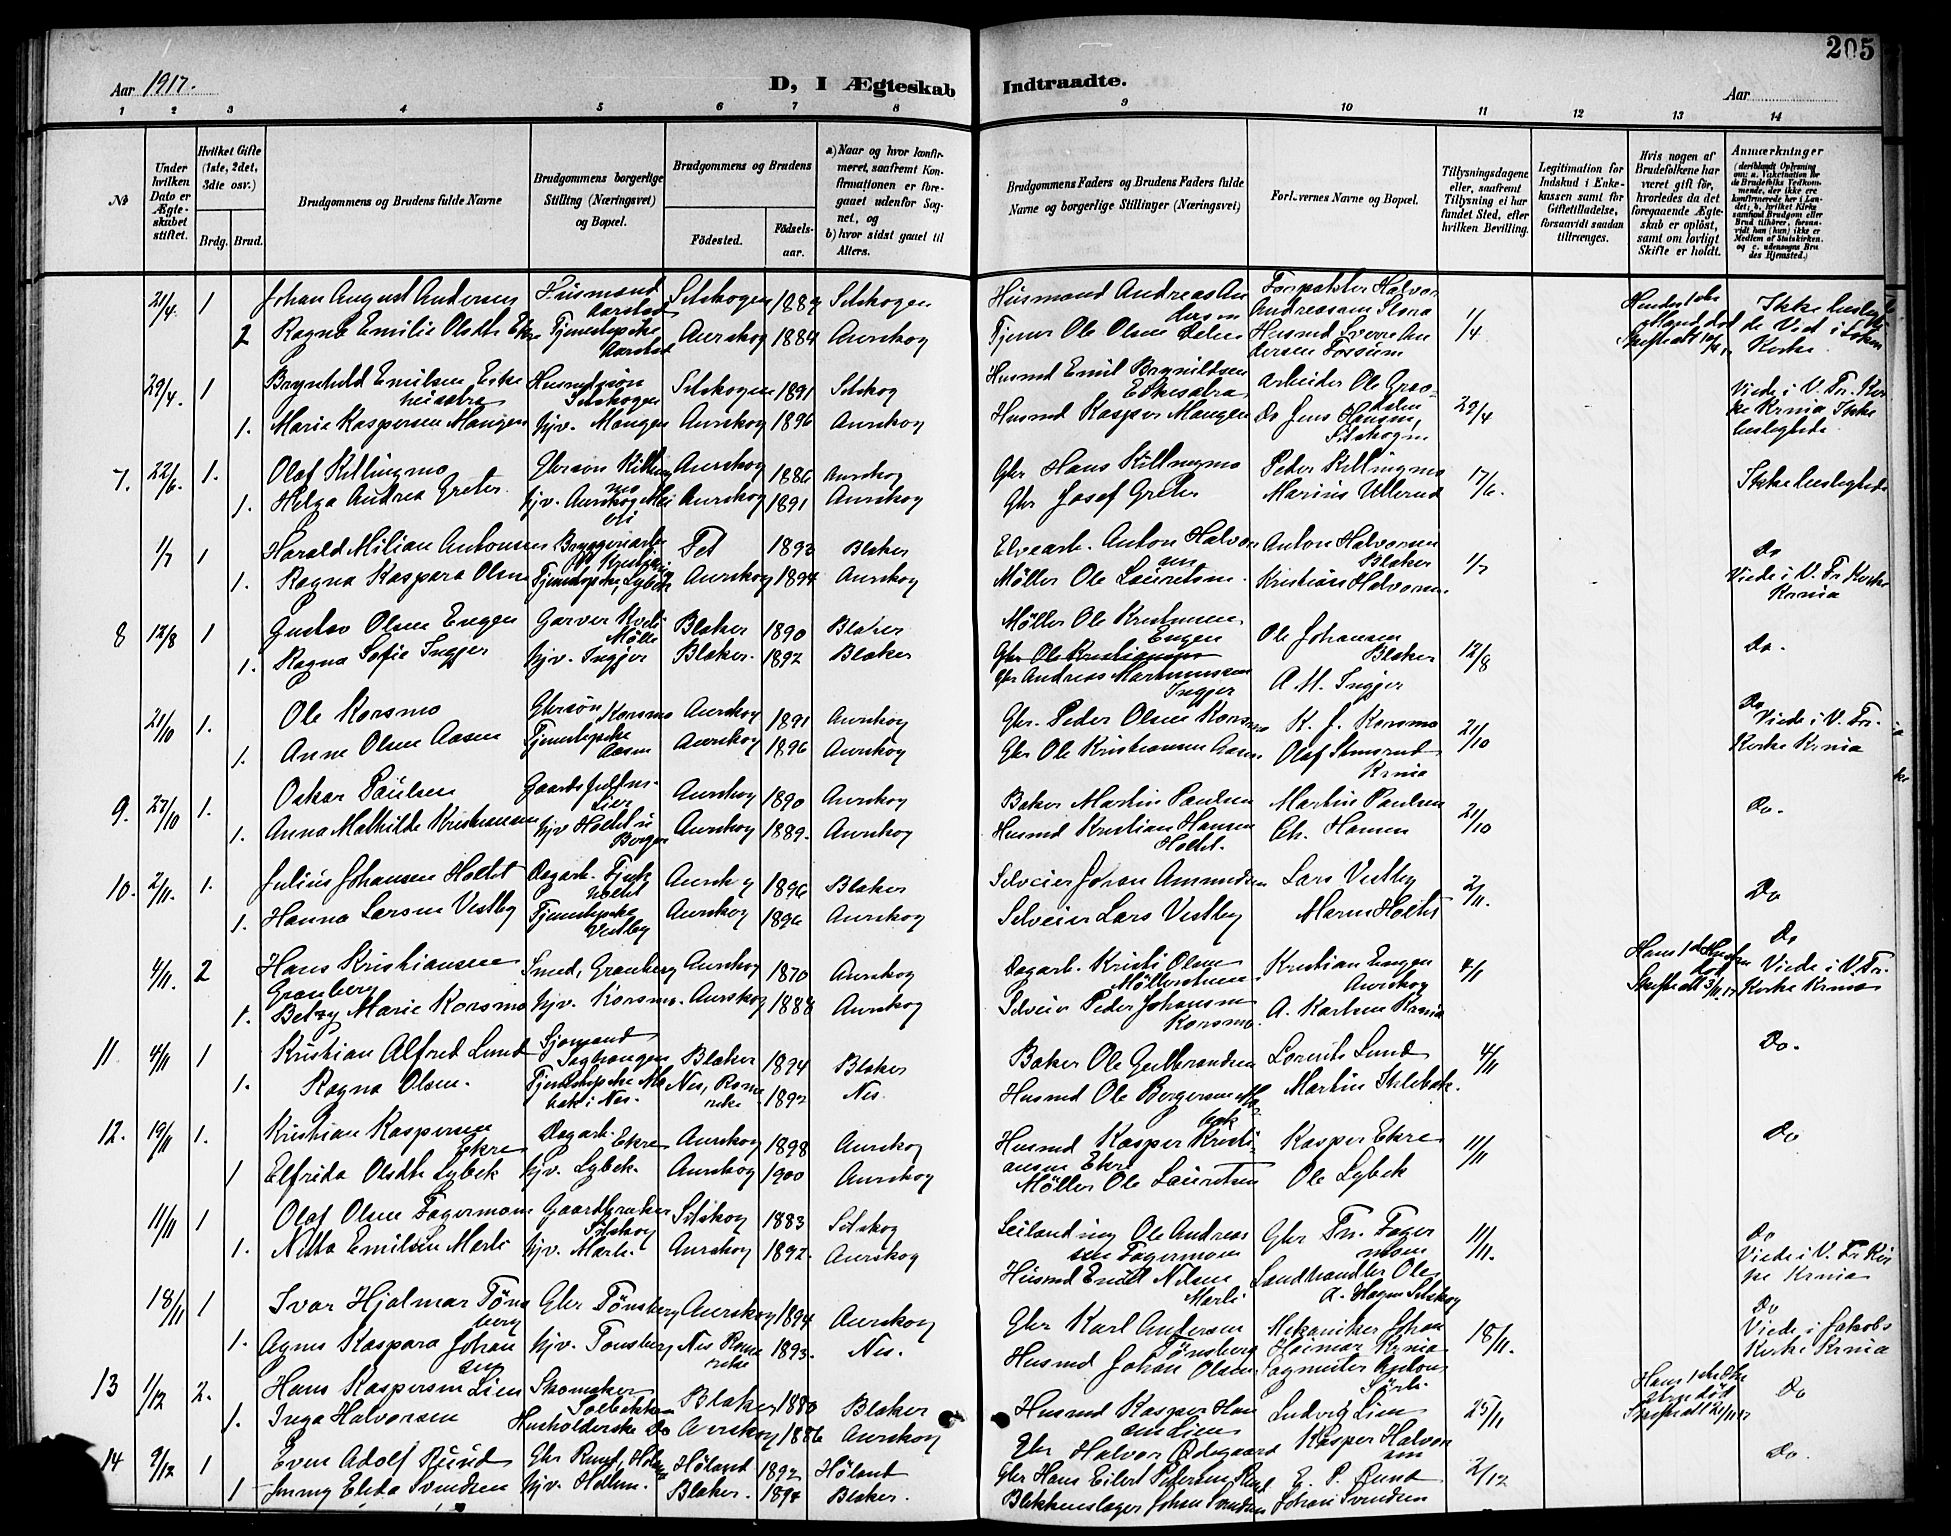 205
Aar 1917.
D, I Ægteskab Indtraadte.
Aar
1 2 3 4 5 6 7 8 9 10 11 12 13 14
No
Under hvilken Dato er Ægteskabet stiftet.
Hvilket Gifte (1ste, 2det, 3die osv.)
Brdg. Brud.
Brudgommens og Brudens fulde Navne
Brudgommens borgerlige Stilling (Næringsvei) og Bopæl.
Brudgommens og Brudens
Födested.
Födsels-aar.
a) Naar og hvor konfirmeret, saafremt Konfirmationen er foregaaet udenfor Sognet, og
b) hvor sidst gaaet til Alters.
Brudgommens Faders og Brudens Faders fulde Navne og borgerlige Stillinger (Næringsvei)
Forlovernes Navne og Bopæl.
Tillysningsdagene eller, saafremt Tillysning ei har fundet Sted, efter hvilken Bevilling.
Legitimation for Indskud i Enkekassen samt for Giftetilladelse, forsaavidt saadan tiltrænges.
Hvis nogen af Brudefolkene har været gift för, hvorledes da det foregaaende Ægteskab er oplöst, samt om lovligt Skifte er holdt.
Anmærkninger
21/4. 1 Johan August Andersen Husmand Aarstad Setskogen 1889 Setskogen Husmand Andreas Andersen Forpakter Halvor Andreassen 1/4
2 Ragna Emilie Olsdtr Ekre Tjenestepike Aarstad Aurskog 1884 Aurskog Tjener Ole Olsen Husmd Sverre Andersen Fossum
29/4. 1 Brynhild Emilsen Husmdssön Setskogen Setskogen 1891 Setskog Husmd Emil Brynildsen Arbeider Ole 29/4 Viede i V. Fr. Kirke Krnia Ikke beslegtede
1. Marie Kaspersen Mangen hjv. Mangen Aurskog 1896 Aurskog Husmd Kasper Mangen Do Jens Hansen, Setskogen
7. 22/6. 1. Olaf Killingmo Gbrsön Killingmo Aurskog 1886 Aurskog Gbr Hans Killingmo Peder Killingmo 17/6. Ikke beslegtede
1. Helga Andrea Greter hjv. Aurskog Meieri Aurskog 1891 Aurskog Gbr Josef Greter Marius Ullerud
1/7 1 Harald Milian Antonsen Bryggeriarb. Fet 1893 Blaker Elvearb. Anton Halvorsen Anton Halvorsen Blaker 1/7 Do Viede i V. Fr Kirke Krnia
1. Ragna Kaspara Olsen Tjenestepike, Lybek Aurskog 1894 Aurskog Möller Ole Lauritsen Kristian Halvorsen
8 12/8 1 Gustav Olsen Engen Garver Mölle Blaker 1890 Blaker Möller Ole Kristensen Engen Ole Johansen Blaker 12/8 Do.
1. Ragna Sofie Ingjer hjv. Ingjer Blaker. 1892 Blaker Gbr Andreas Martinussen Ingjer A. M. Ingjer
21/10 1. Ole Korsmo Gbrsön Korsmo Aurskog 1891 Aurskog Gbr. Peder Olsen Korsmo K. J. Korsmo 21/10 Do Viede i V. Fr. Kirke Krnia
1. Anne Olsen Aasen Tjenestepike Aasen Aurskog 1896 Aurskog Gbr Ole Kristiansen Aasen Olaf Krnia
9. 27/10 1. Oskar Paulsen Lier Aurskog 1890 Aurskog Baker Martin Paulsen Martin Paulsen 21/10 Do.
1. Anna Mathilde Kristiansen hjv Holtet Aurskog 1889. Aurskog Husmd Kristian Hansen Holtet. Ch. Hansen
10. 2/11. 1. Julius Johansen Holtet Dagarb. Holtet Aurskog 1896 Blaker Selveier Johan Amundsen Lars Vestby 2/11. Do
1. Hanna Larsen Vestby Tjenestepike Vestby Aurskog 1896 Aurskog Selveier Lars Vestby Maren Holtet
4/11. 2 Hans Kristiansen Granberg Smed, Granberg Aurskog 1870 Aurskog Dagarb. Kristi Olsen Kristian Engen Aurskog 4/11 Hans 1ste Hustru död Skifteatt 3/11.17 Do Viede i V. Fr. Kirke Krnia
1. Betzy Marie Korsmo hjv. Korsmo. Aurskog 1888 Aurskog Selveier Peder Johansen Korsmo. A. Karlsen Krnia
11. 4/11 1 Kristian Alfred Lund Sjömand Blaker 1894 Blaker Baker Ole Gulbrandsen Lorents Lund 4/11 Do.
1. Ragna Olsen. Tjenestepike i Nes. Nes, Romerike 1892 Nes. Husmd Ole Bergersen Martin
12. 19/11 1. Kristian Kaspersen Ekre Dagarb. Ekre Aurskog 1898 Aurskog Husmd Kasper Kristiansen Ekre Kasper Ekre 11/11 Do
1 Elfrida Olsdtr Lybek hjv. Lybek. Aurskog 1900 Aurskog Möller Ole Lauritsen Ole Lybek
11/11 1 Olaf Olsen Fagermoen Gaardbruker Setskog Setskog 1883 Setskog Ole Andreassen Fagermoen Gbr Fagermoen 11/11. Do Viede i V. Fr Kirke Krnia
1. Netta Emilsen Merli hjv. Merli. Aurskog 1892. Aurskog Husmd Emil Nilsen Merli Landhandler Ole A. Hagen Setskog
18/11 1 Ivar Hjalmar Tönsberg Gbr Tönsberg Aurskog 1894 Aurskog Gbr Karl Andersen Tönsberg Mekaniker Johan Krnia 18/11. Do Viede i Jakobs Kirke Krnia
1. Agnes Kaspara Johansen hjv. Tönsberg Nes Romerike 1893. Nes. Husmd Johan Olsen Sagmester Anton
13 1/12 2. Hans Kaspersen Lien Skomaker Solbakken Blaker 1880 Blaker Husmd Kasper Hansen Lien Ludvig Lien 25/11 Do
1. Inga Halvorsen Husholderske Do Aurskog 1886 Aurskog Gbr Halvor Ödegaard Kasper Halvorsen
14 9/12 1 Even Adolf Rund Gbr Rund, Höland 1892 Höland Gbr Hans Eilert Pedersen Rund E. P. Rund 2/12 Do.
1 Jenny Elida Svendsen hjv. Blaker. 1894 Blaker. Blikkenslager Johan Svendsen Johan Svendsen